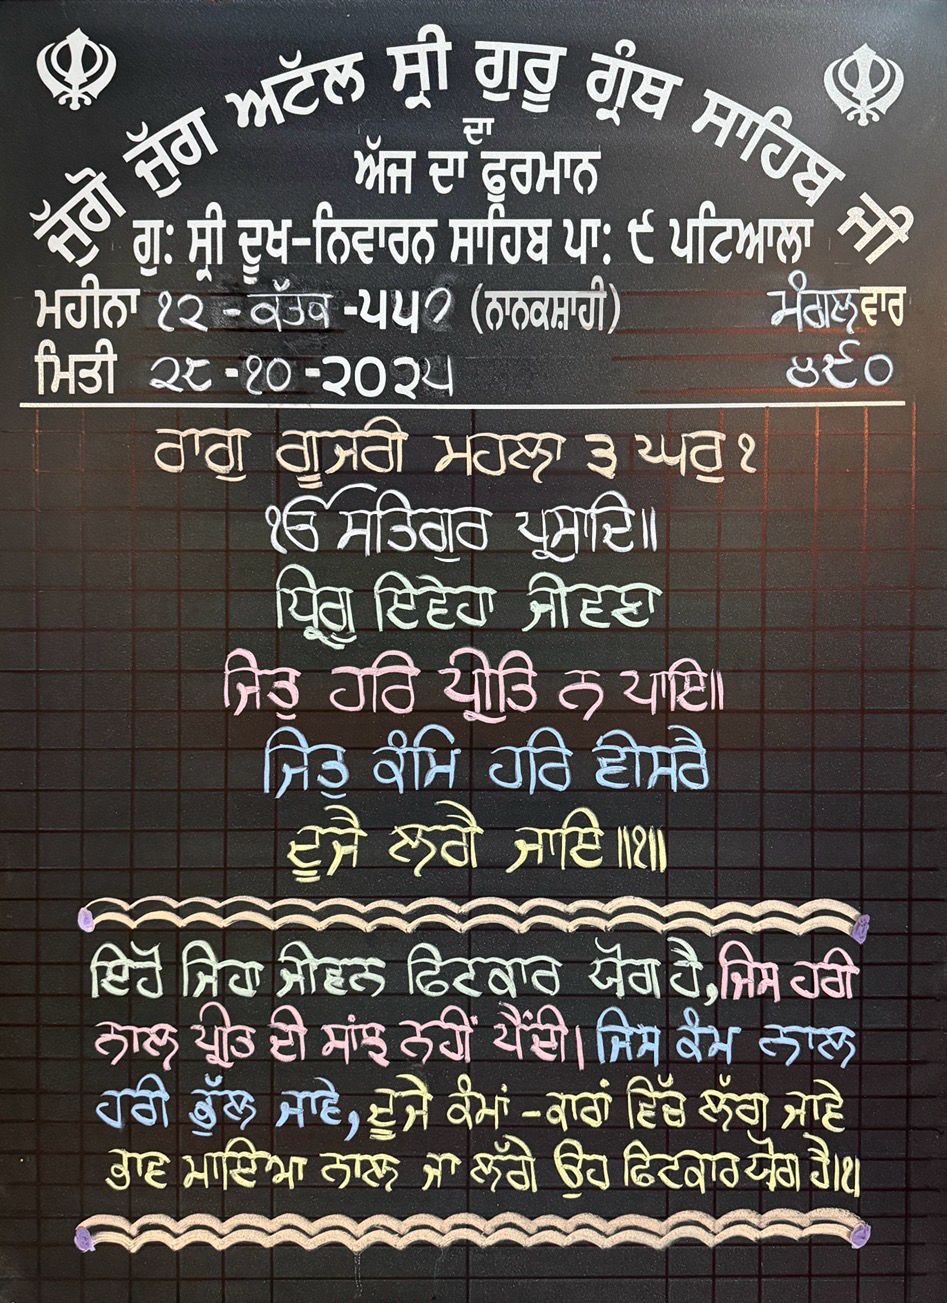 ਜੁੱਗੋ ਜੁੱਗ ਅਟੱਲ ਸ੍ਰੀ ਗੁਰੂ ਗ੍ਰੰਥ ਸਾਹਿਬ ਜੀ
ਦਾ
ਅੱਜ ਦਾ ਫੁਰਮਾਨ
ਗੁ: ਸ੍ਰੀ ਦੂਖ-ਨਿਵਾਰਨ ਸਾਹਿਬ ਪਾ: ੯ ਪਟਿਆਲਾ
ਮਹੀਨਾ ੧੨ - ਕੱਤਕ - ੫੫੭ (ਨਾਨਕਸ਼ਾਹੀ) ਮੰਗਲਵਾਰ
ਮਿਤੀ ੨੮ - ੧੦ - ੨੦੨੫ ੪੯੦
ਰਾਗੁ ਗੂਜਰੀ ਮਹਲਾ ੩ ਘਰੁ ੧
ੴ ਸਤਿਗੁਰ ਪ੍ਰਸਾਦਿ॥
ਧ੍ਰਿਗੁ ਇਵੇਹਾ ਜੀਵਣਾ
ਜਿਤੁ ਹਰਿ ਪ੍ਰੀਤਿ ਨ ਪਾਇ॥
ਜਿਤੁ ਕੰਮਿ ਹਰਿ ਵੀਸਰੈ
ਦੂਜੈ ਲਗੈ ਜਾਇ॥੧॥
ਇਹੋ ਜਿਹਾ ਜੀਵਨ ਫਿਟਕਾਰ ਯੋਗ ਹੈ, ਜਿਸ ਹਰੀ
ਨਾਲ ਪ੍ਰੀਤ ਦੀ ਸਾਂਝ ਨਹੀਂ ਪੈਂਦੀ। ਜਿਸ ਕੰਮ ਨਾਲ
ਹਰੀ ਭੁੱਲ ਜਾਵੇ, ਦੂਜੇ ਕੰਮਾਂ - ਕਾਰਾਂ ਵਿੱਚ ਲੱਗ ਜਾਵੇ
ਭਾਵ ਮਾਇਆ ਨਾਲ ਜਾ ਲੱਗੇ ਉਹ ਫਿਟਕਾਰ ਯੋਗ ਹੈ।੧।